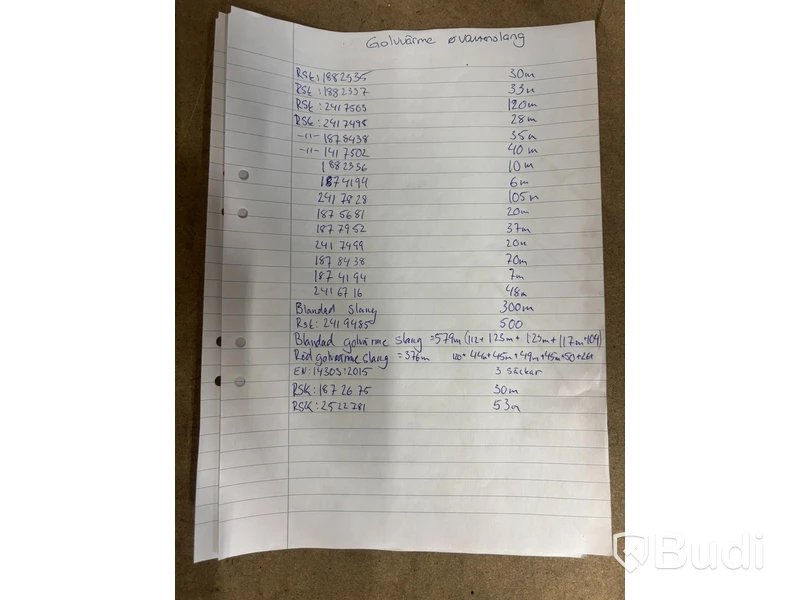 Golvvärme & vattenslang
RSK: 1882335 30m
RSK: 1882337 33m
RSK: 2417503 120m
RSK: 2417498 28m
-11- 1878438 35m
-11- 1417502 40m
1882336 10m
1874194 6m
2417828 105m
1875681 20m
1877952 37m
2417499 20m
1878438 70m
1874194 7m
2416716 48m
Blandad slang 300m
RSK: 2419485 500
Blandad golvvärme slang =579m (112+123m+123m+117m+104)
Röd golvvärme slang =376m 44m+45m+49m+45m+50+26+
EN:14303:2015 3 säckar
RSK:1872675 30m
RSK:2522781 53m
Budi